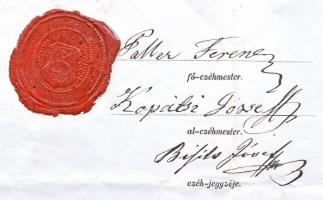 Paller Ferenc
fő-czéhmester.
Kopátsi József
al-czéhmester.
József
czéh-jegyzője.